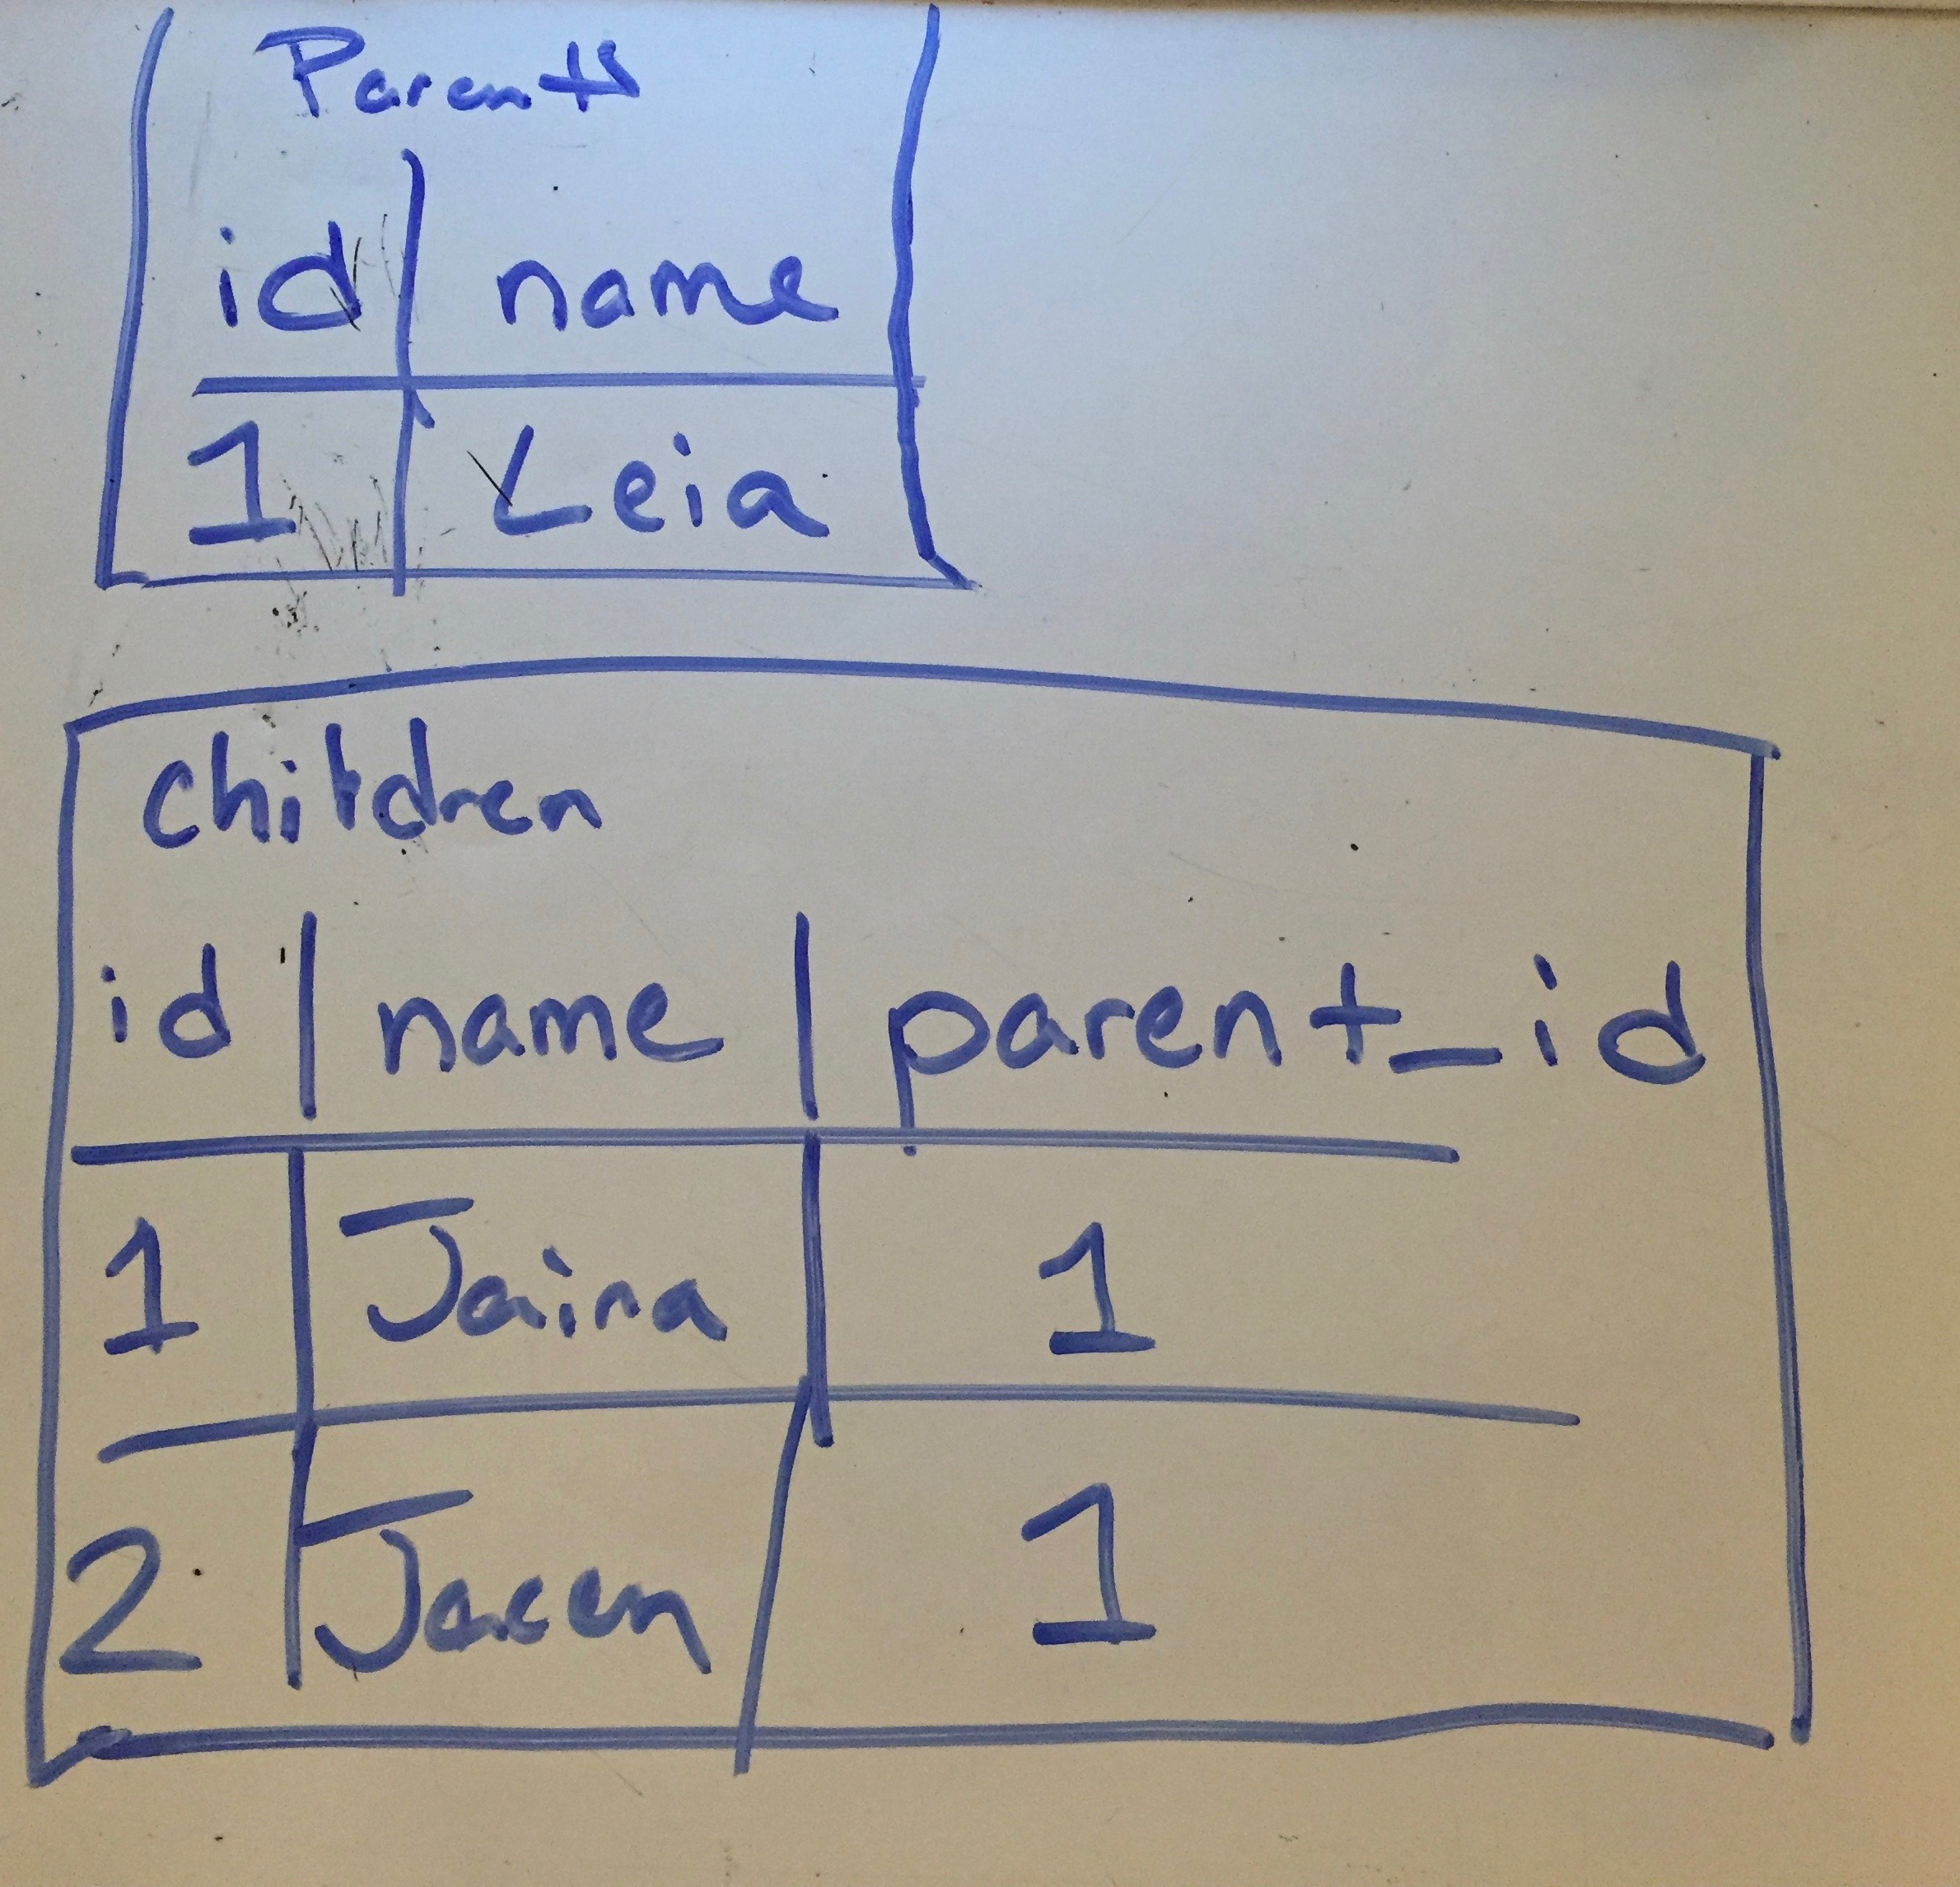 Parents
id name
1 Leia
children
id name parent_id
1 Jaina 1
2 Jacen 1